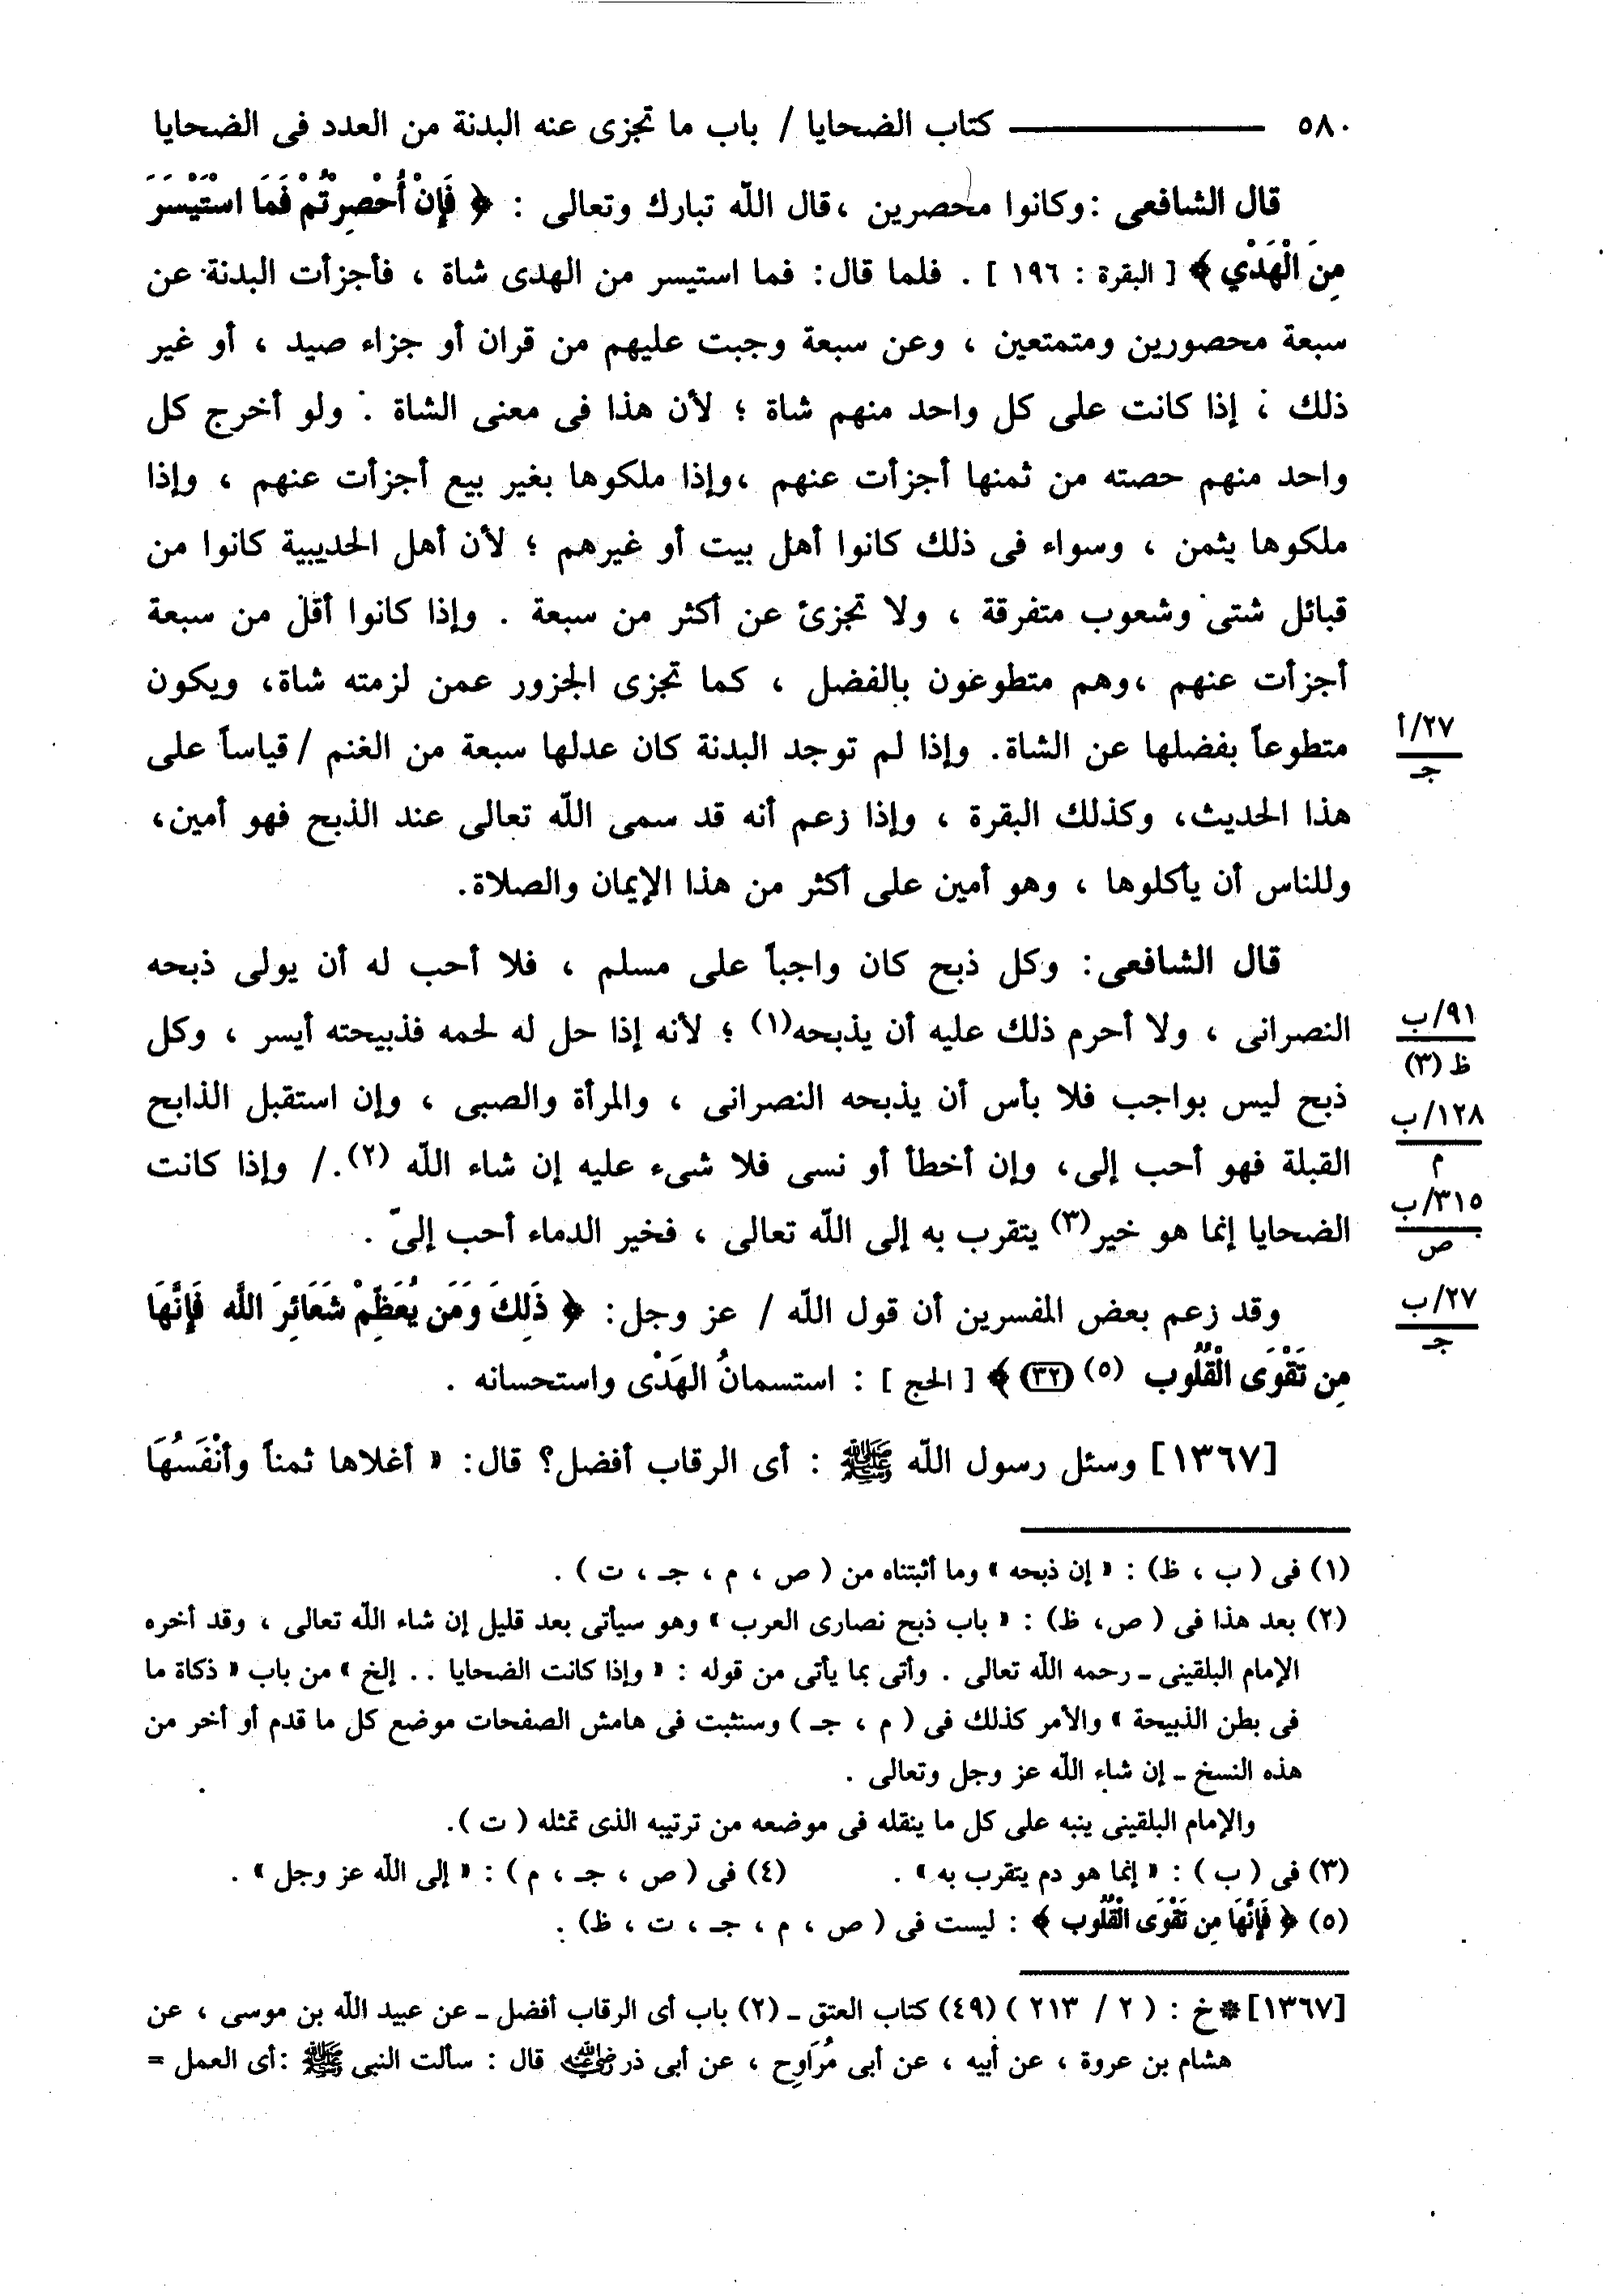 ٥٨٠ ــــــــــــ كتاب الضحايا / باب ما تجزى عنه البدنة من العدد فى الضحايا
قال الشافعى :وكانوا محصرين ،قال اللّه تبارك وتعالى : ﴿ فَإِنْ أُحْصِرْتُمْ فَمَا اسْتَيْسَرَ
مِنَ الْهَدْيِ ﴾ [ البقرة : ١٩٦ ] . فلما قال: فما استيسر من الهدى شاة ، فأجزأت البدنة عن
سبعة محصورين ومتمتعين ، وعن سبعة وجبت عليهم من قران أو جزاء صيد ، أو غير
ذلك ; إذا كانت على كل واحد منهم شاة ؛ لأن هذا فى معنى الشاة . ولو أخرج كل
واحد منهم حصته من ثمنها أجزأت عنهم ،وإذا ملكوها بغير بيع أجزأت عنهم ، وإذا
ملكوها بثمن ، وسواء فى ذلك كانوا أهل بيت أو غيرهم ؛ لأن أهل الحديبية كانوا من
قبائل شتى وشعوب متفرقة ، ولا تجزئ عن أكثر من سبعة . وإذا كانوا أقل من سبعة
أجزأت عنهم ،وهم متطوعون بالفضل ، كما تجزى الجزور عمن لزمته شاة، ويكون
متطوعاً بفضلها عن الشاة. وإذا لم توجد البدنة كان عدلها سبعة من الغنم / قياساً على
٢٧/أ
جـ
هذا الحديث، وكذلك البقرة ، وإذا زعم أنه قد سمى اللّه تعالى عند الذبح فهو أمين،
وللناس أن يأكلوها ، وهو أمين على أكثر من هذا الإيمان والصلاة.
قال الشافعى: وكل ذبح كان واجباً على مسلم ، فلا أحب له أن يولى ذبحه
النصرانى ، ولا أحرم ذلك عليه أن يذبحه(١) ؛ لأنه إذا حل له لحمه فذبيحته أيسر ، وكل
٩١/ب
ظ (٣)
ذبح ليس بواجب فلا بأس أن يذبحه النصرانى ، والمرأة والصبى ، وإن استقبل الذابح
١٢٨/ب
م
القبلة فهو أحب إلى، وإن أخطأ أو نسى فلا شىء عليه إن شاء اللّه (٢)./ وإذا كانت
٣١٥/ب
ص
الضحايا إنما هو خير(٣) يتقرب به إلى اللّه تعالى ، فخير الدماء أحب إلىّ .
وقد زعم بعض المفسرين أن قول اللّه / عز وجل: ﴿ ذَلِكَ وَمَن يُعَظِّمْ شَعَائِرَ اللَّه فَإِنَّهَا
٢٧/ب
جـ
مِن تَقْوَى الْقُلُوب (٥) (٣٢) ﴾ [ الحج ] : استسمانُ الهَدْى واستحسانه .
[١٣٦٧] وسئل رسول اللّه ﷺ : أى الرقاب أفضل؟ قال: « أغلاها ثمناً وأنْفَسُهَا
(١) فى ( ب ، ظ) : « إن ذبحه » وما أثبتناه من ( ص ، م ، جـ ، ت ) .
(٢) بعد هذا فى ( ص، ظ) : « باب ذبح نصارى العرب » وهو سيأتى بعد قليل إن شاء اللّه تعالى ، وقد أخره
الإمام البلقينى ـ رحمه اللّه تعالى . وأتى بما يأتى من قوله : « وإذا كانت الضحايا . . إلخ » من باب « ذكاة ما
فى بطن الذبيحة » والأمر كذلك فى ( م ، جـ ) وسنثبت فى هامش الصفحات موضع كل ما قدم أو أخر من
هذه النسخ ـ إن شاء اللّه عز وجل وتعالى .
والإمام البلقينى ينبه على كل ما ينقله فى موضعه من ترتيبه الذى تمثله ( ت ).
(٣) فى ( ب ) : « إنما هو دم يتقرب به » . (٤) فى ( ص ، جـ ، م ) : « إلى اللّه عز وجل » .
(٥) ﴿ فَإِنَّهَا مِن تَقْوَى الْقُلُوب ﴾ : ليست فى ( ص ، م ، جـ ، ت ، ظ) .
[١٣٦٧]* خ : ( ٢ / ٢١٣ ) (٤٩) كتاب العتق ـ (٢) باب أى الرقاب أفضل ـ عن عبيد اللّه بن موسى ، عن
هشام بن عروة ، عن أبيه ، عن أبى مُرَاوِح ، عن أبى ذر رضي الله عنه قال : سألت النبى ﷺ :أى العمل =